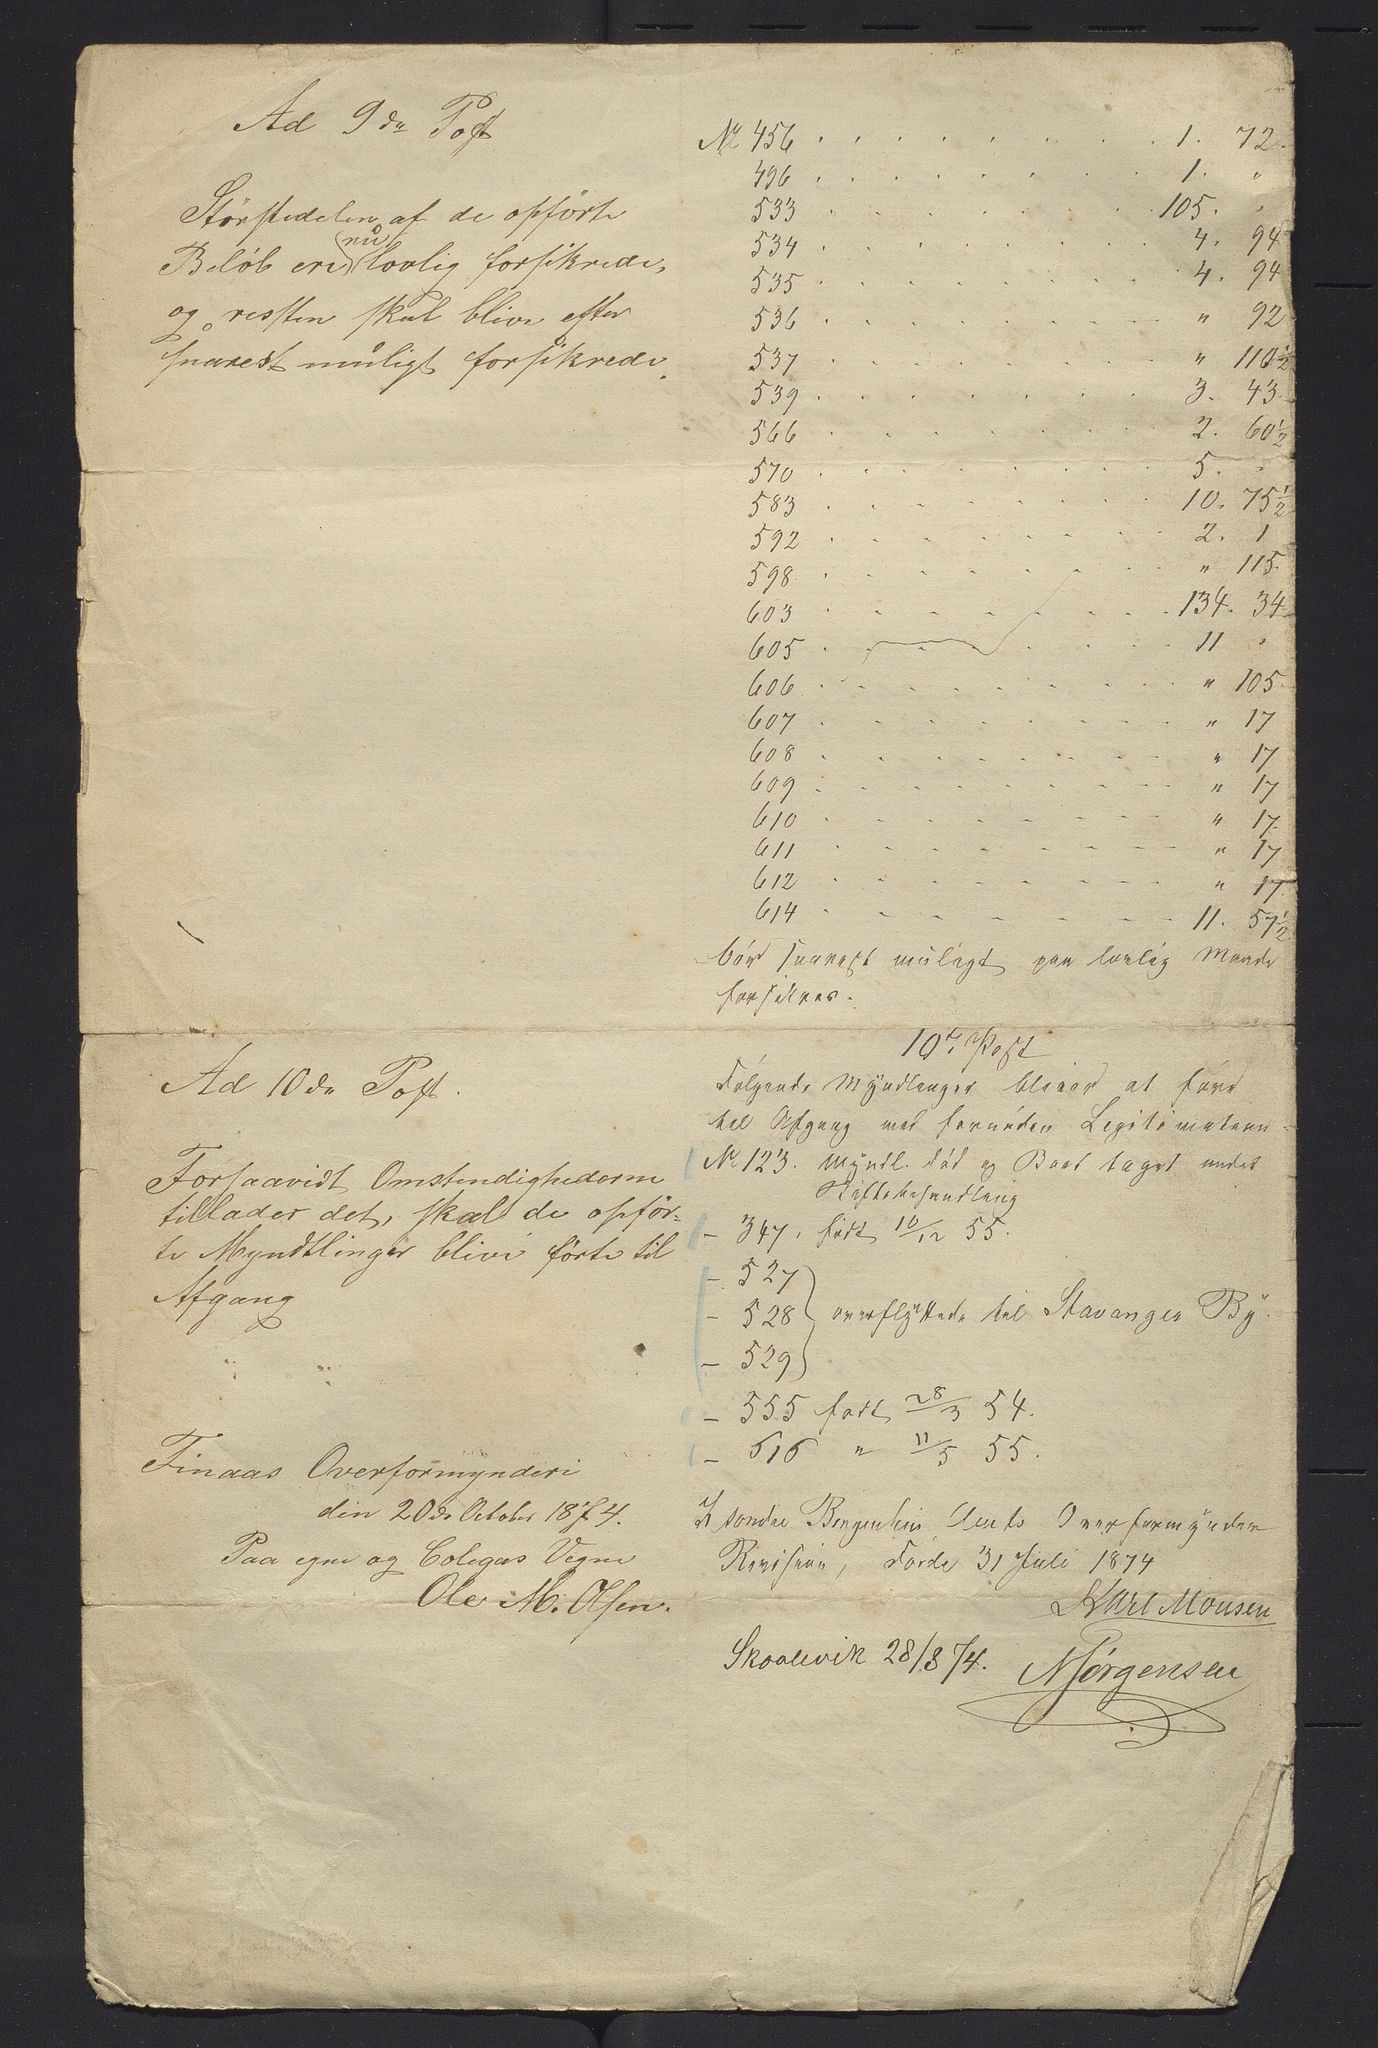 Ad 9de Post
Størstedelen af de opførte
Beløb ere nu lovlig forsikrede,
og resten skal blive efter
snarest muligt forsikrede.
Ad 10de Post.
Forsaavidt Omstendighederne
tillader det, skal de opfør=
te Myndtlinger blive førte til
Afgang
Finaas Overformynderi
den 20de October 1874.
Paa egne og Colegas Vegne
Ole M. Olsen.
No 456 1. 72.
496 1. "
533 105. "
534 4. 94
535 4. 94
536 " 92
537 " 110½
539 3. 43.
566 2. 60½
570 5. "
583 10. 75½
592 2. 1
598 " 115.
603 134. 34.
605 11 "
606 " 105.
607 " 17
608 " 17
609 " 17
610 " 17.
611 " 17
612 " 17.
614 11. 57½
bør snarest muligt paa lovlig Maade
forsikres.
10de Post
Følgende Myndlinger bliver at føre
til Afgang med fornøden Legitimation
No 123. Myndl. død og Boet taget under
Skiftebehandling
– 347. født 10/12 55.
– 527
– 528 overflyttede til Stavanger By.
– 529
– 555 født 28/3 54.
– 616 " 11/5 55.
I søndre Bergenhus Amts Overformynder
Revision, Førde 31 Juli 1874
Karl Monsen
Skoolevik 28/8 74. NJørgensen